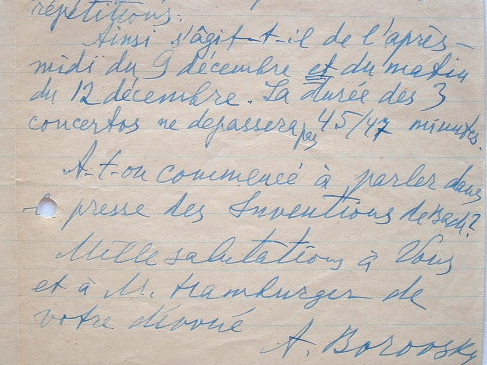 répétitions.
Ainsi s'âgit-t-il de l'après-
midi du 9 décembre et du matin
du 12 décembre. La durée des 3
concertos ne depassera pas 45/47 minutes.
A-t-on commencé à parler dans
la presse des Inventions de Bach?
Mille salutations à Vous
et à M. Hamburger de
votre dévoué
A. Borovsky